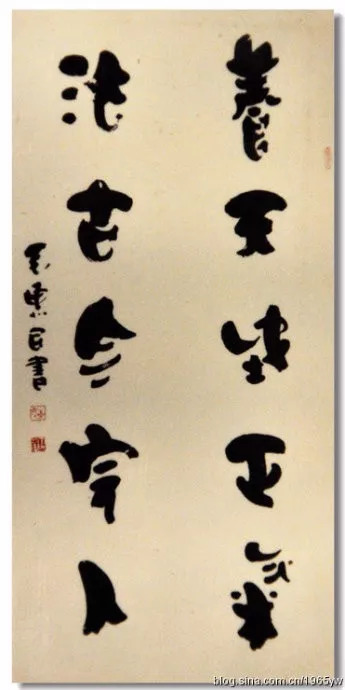 養天地正氣
法古今完人
民書
blog.sina.com.cn/1965yw